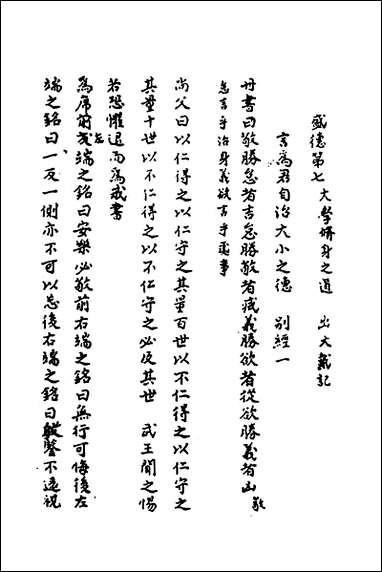 盛德第七 大學脩身之道 出大戴記
言為君自治大小之德 別經一
丹書曰敬勝怠者吉怠勝敬者滅義勝欲者從欲勝義者凶 敬
怠言乎治身義欲言乎事
尚父曰以仁得之以仁守之其量百世以不仁得之以仁守之
其量十世以不仁得之以不仁守之必及其世 武王聞之惕
若恐懼退而為戒書
為席前左端之銘曰安樂必敬前右端之銘曰無行可悔後左
端之銘曰一反一側亦不可以忘後右端之銘曰鑒不遠視